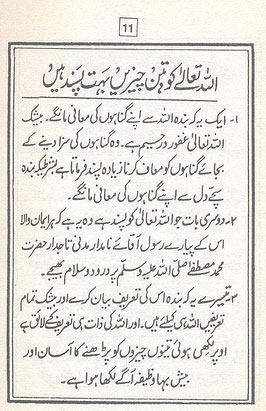 11
اللہ تعالیٰ کو تین چیزیں بہت پسند ہیں
۱- ایک یہ کہ بندہ اللہ سے اپنے گناہوں کی معافی مانگے۔ بیشک
اللہ تعالیٰ غفور و رحیم ہے۔ وہ گناہوں کی سزا دینے کے
بجائے گناہوں کو معاف کرنا زیادہ پسند فرماتا ہے بشرطیکہ بندہ
سچے دل سے اپنے گناہوں کی معافی مانگے۔
۲- دوسری بات جو اللہ تعالیٰ کو پسند ہے وہ یہ ہے کہ ہر ایمان والا
اس کے پیارے رسول آقائے نامدار مدنی تاجدار حضرت
محمد مصطفےٰ صلی اللہ علیہ وسلم پر درود و سلام بھیجے۔
۳- تیسرے یہ کہ بندہ اس کی تعریف بیان کرے اور بیشک تمام
تعریفیں اللہ ہی کیلئے ہیں۔ اور اللہ کی ذات ہی تعریف کے لائق ہے
اوپر لکھی ہوئی تینوں چیزوں کو پڑھنے کا آسان اور
بیش بہا وظیفہ آگے لکھا ہوا ہے۔